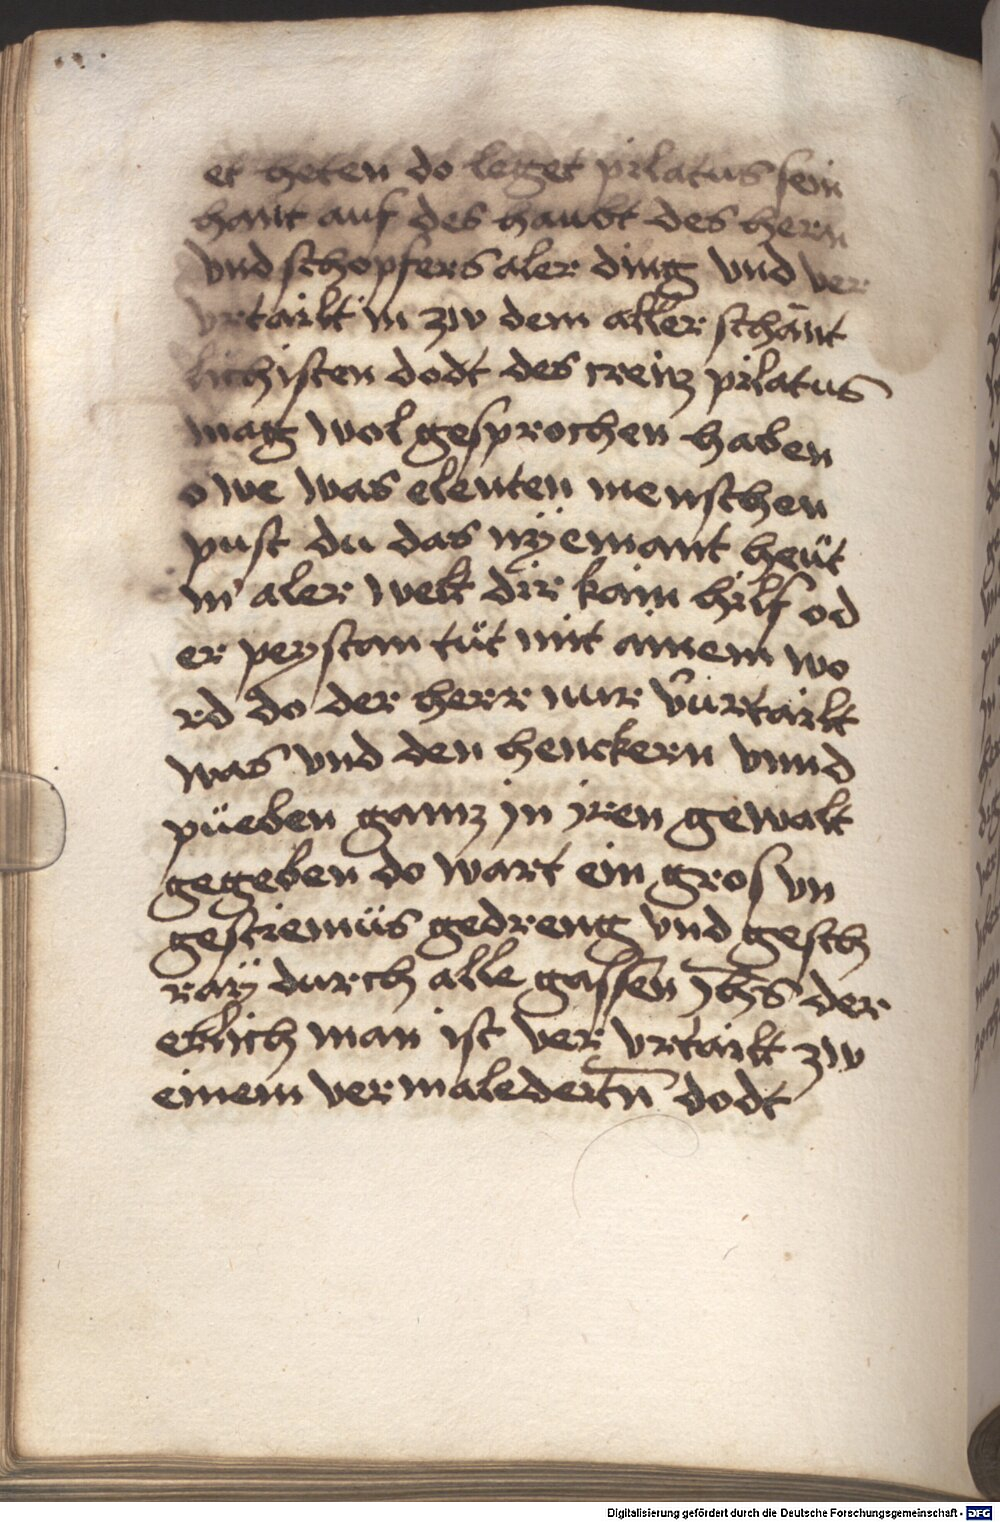 et heten do leget pilatus sein
hant auf des haubt des hern
vnd schopfers aler ding vnd ver
vrtailt in zw dem aller schant
lichisten dodt des creitz pilatus
mag wol gesprochen haben
o we was elenten menschen
pust du das nÿemant heüt
in aler welt dir kain hilf od
er peystan tüt mit ainem wo
rd do der herr nur vũrtailt
was vnd den henckern vnnd
püeben gantz jn jren gewalt
gegeben do wart ein gros vn
gestiemüs gedreng vnd gesch
raÿ durch alle gassen jhs̄ der
erlich man ist ver vrtailt zw
einem vermaledeitn̄ dodt
Digitalisierung gefördert durch die Deutsche Forschungsgemeinschaft - DFG